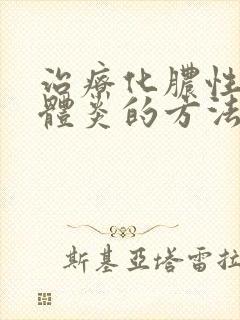 治療化膿性
體炎的方法
斯基亞塔雷拉